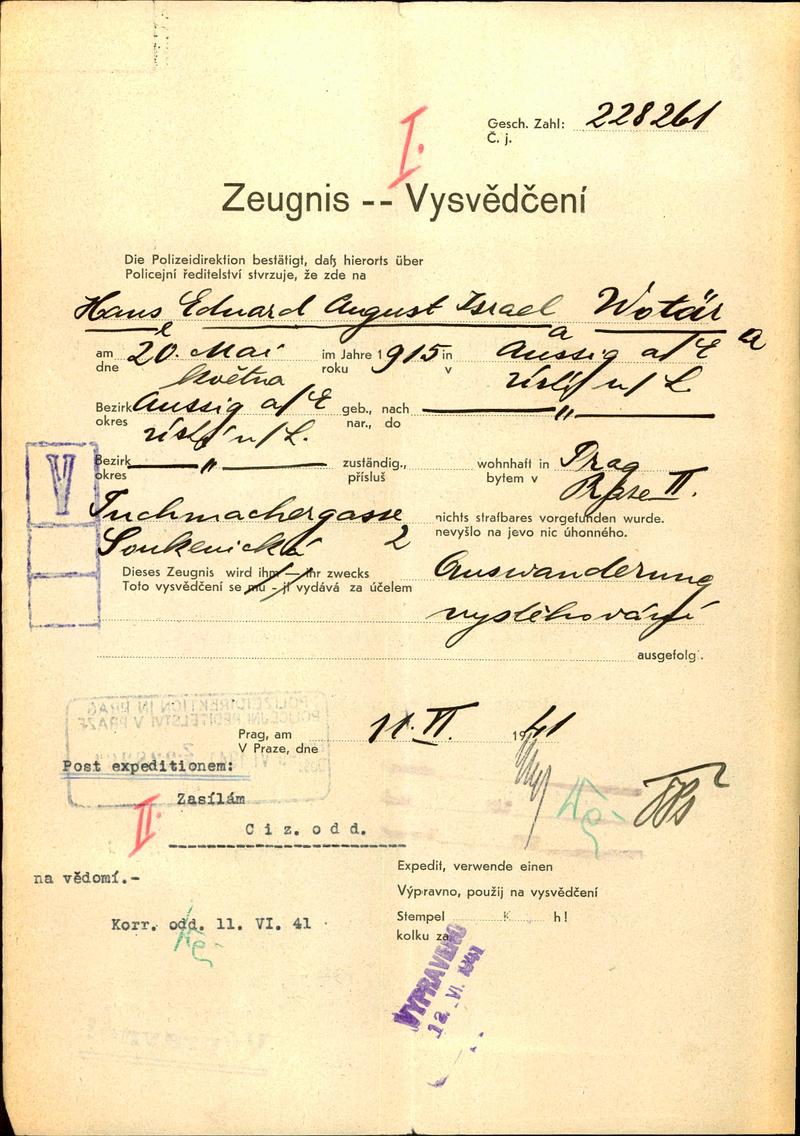 I.
Gesch. Zahl: 228261
Č. j.
Zeugnis -- Vysvědčení
Die Polizeidirektion bestätigt, daß hierorts über
Policejní ředitelství stvrzuje, že zde na
Hans Eduard August Israel Wotär
am 20. Mai im Jahre 1915 in Aussig a/E
dne května roku v
Bezirk Aussig a/E geb., nach "
okres nar., do
Bezirk " zuständig., wohnhaft in Prag
okres přísluš bytem v Praze II.
V
Tuchmachergasse nichts strafbares vorgefunden wurde.
Soukenická 2 nevyšlo na jevo nic úhonného.
Dieses Zeugnis wird ihm — ihr zwecks Auswanderung
Toto vysvědčení se mu - jí vydává za účelem
vystěhování
ausgefolg.
POLIZEIDIREKTION IN PRAG
POLICEJNÍ ŘEDITELSTVÍ V PRAZE
Prag, am 11. VI. 1941
V Praze, dne
Post expeditionem:
Zasílám
II.
Ciz. odd.
na vědomí.-
Expedit, verwende einen
Výpravno, použij na vysvědčení
Korr. odd. 11. VI. 41
Stempel K h!
kolku za
VYPRAVENO
12. VI. 1941